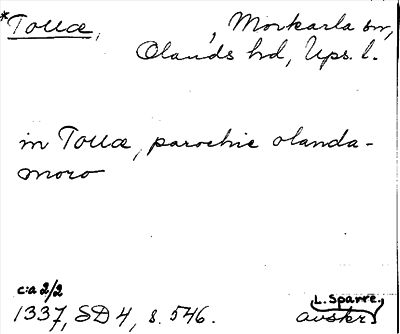 *Tollæ, , Morkarla sn,
Olands hd, Ups. l.
in Tollæ, parochie olanda-
moro
c:a 2/2
1337, SD 4, s. 546.
L. Sparre.
avskr.